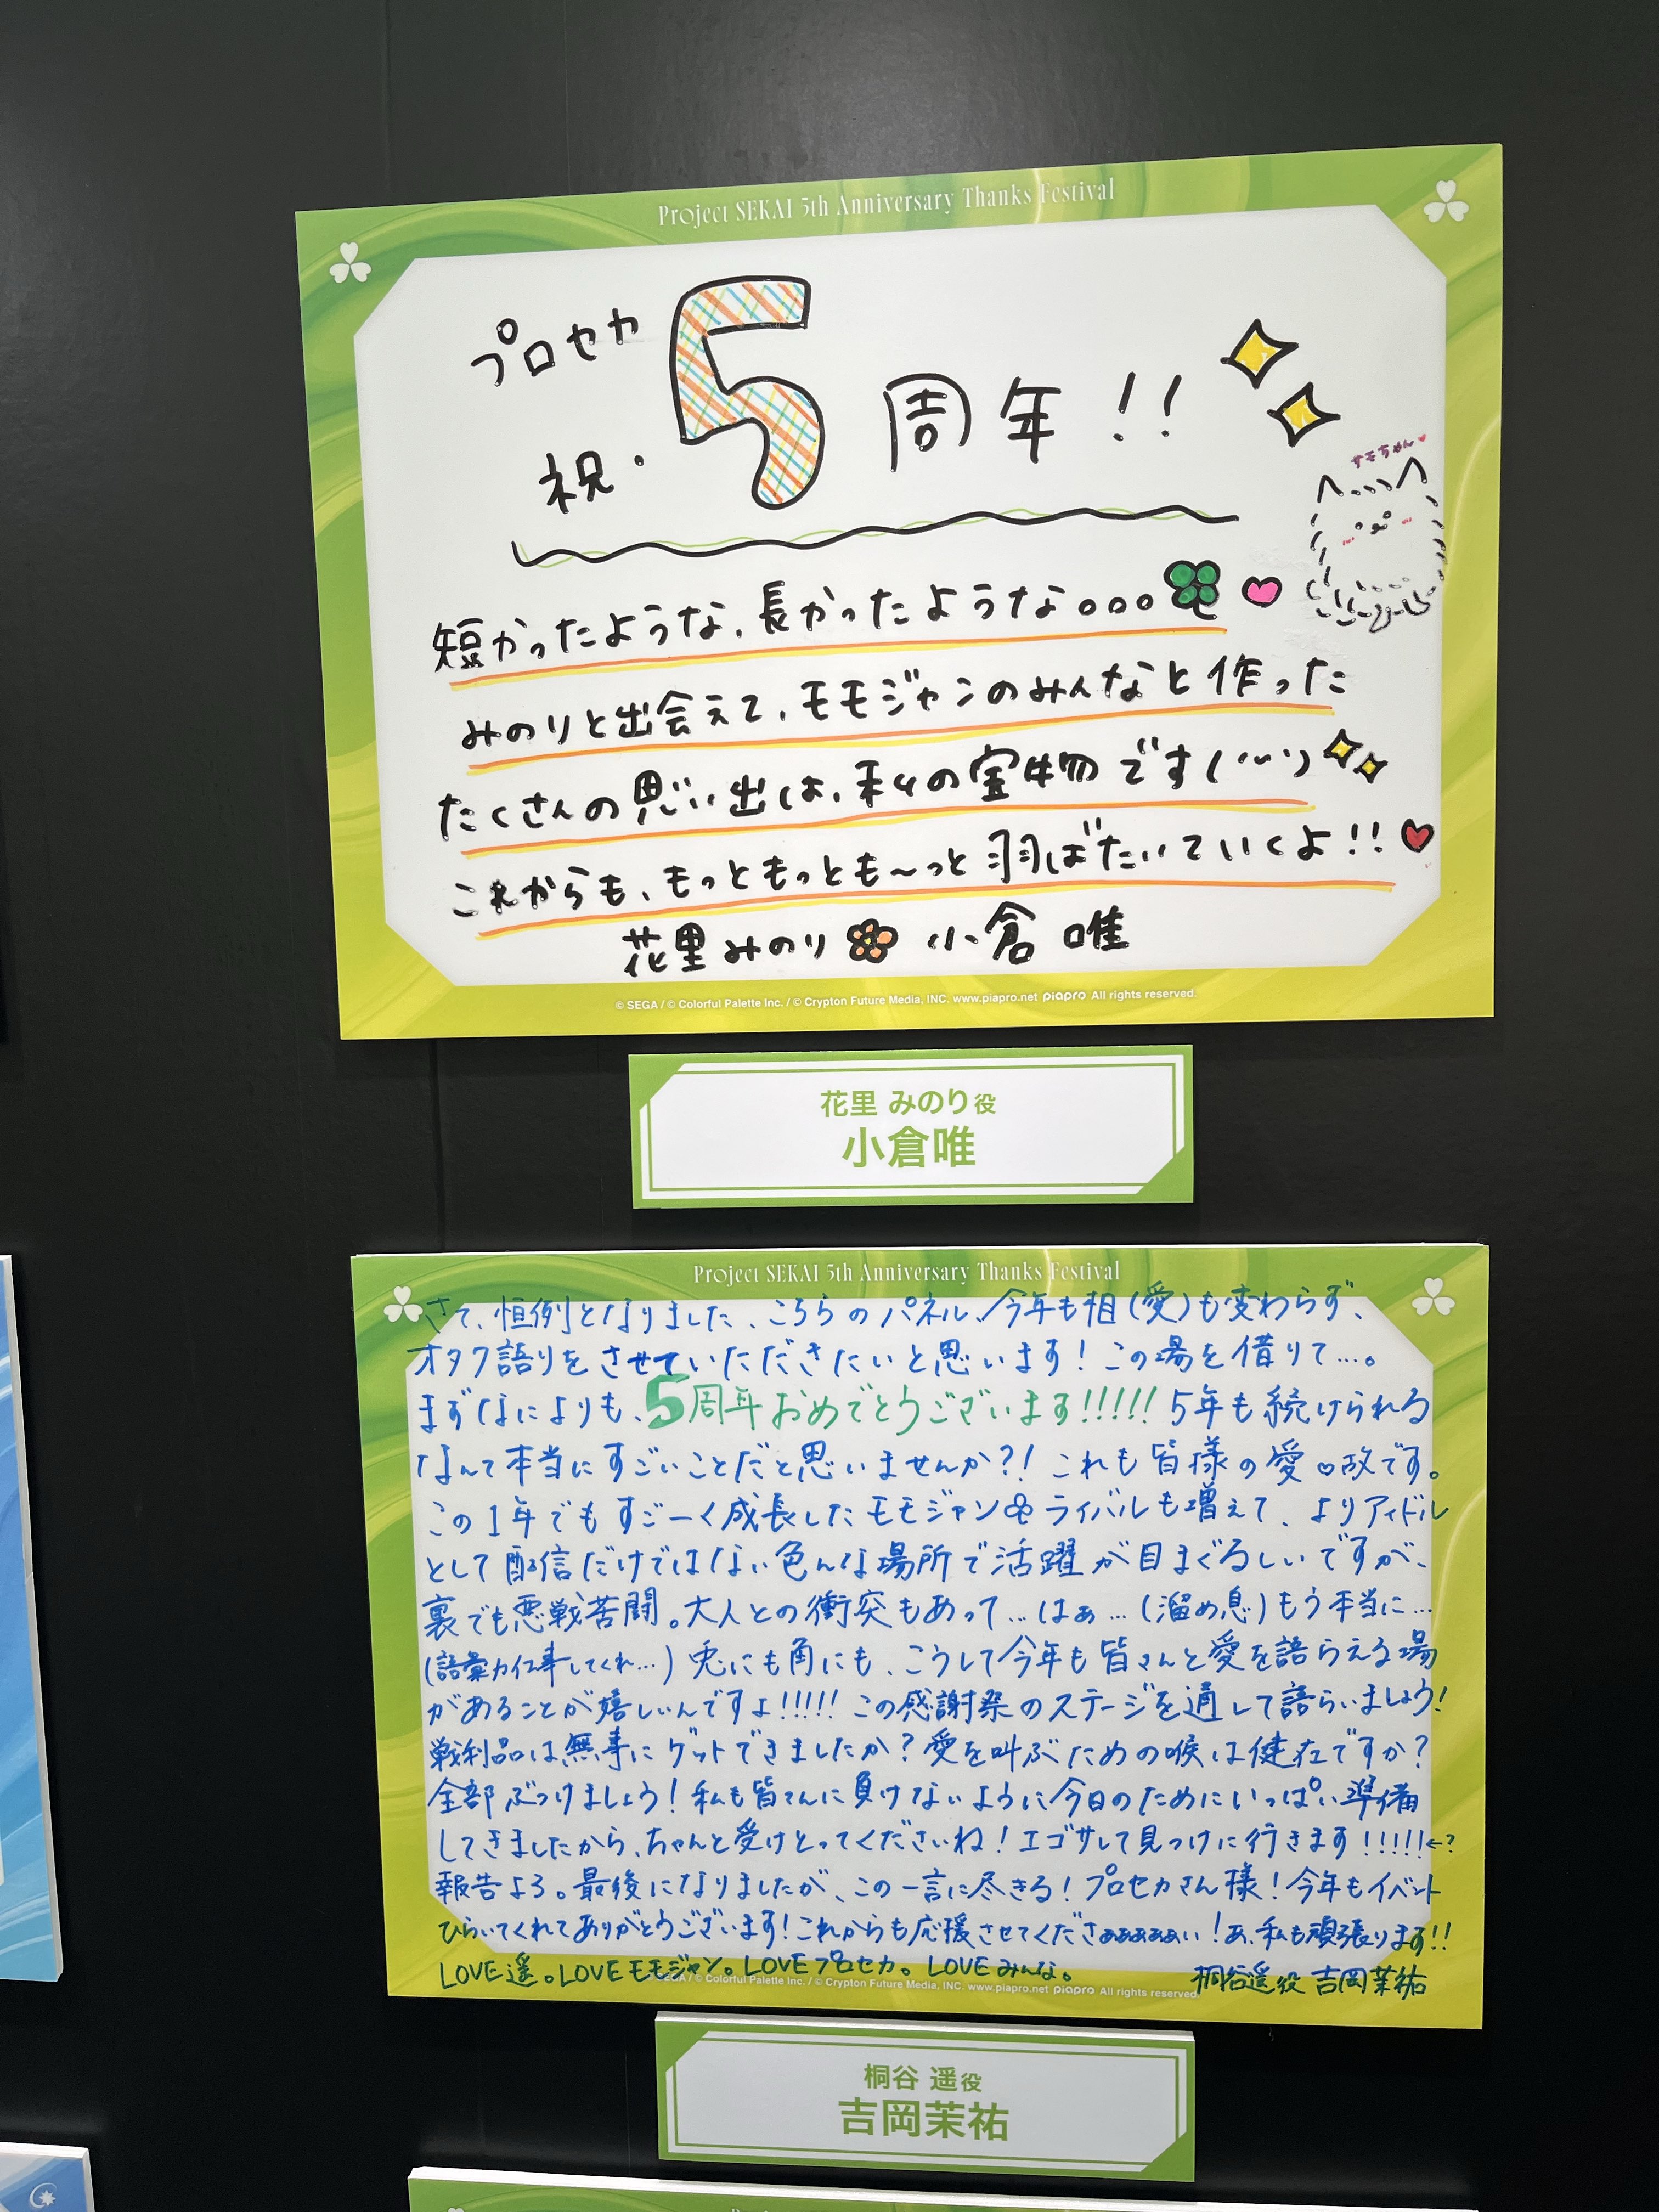 Project SEKAI 5th Anniversary Thanks Festival
プロセカ
祝・5周年!!
サモちゃん
短かったような、長かったような。。。
みのりと出会えて、モモジャンのみんなと作った
たくさんの思い出は、私の宝物です(˙ᵕ˙)
これからも、もっともっとも〜っと羽ばたいていくよ!!
花里みのり 小倉 唯
© SEGA / © Colorful Palette Inc. / © Crypton Future Media, INC. www.piapro.net piapro All rights reserved.
花里 みのり役
小倉唯
Project SEKAI 5th Anniversary Thanks Festival
さて、恒例となりました、こちらのパネル、今年も相(愛)も変わらず、
オタク語りをさせていただきたいと思います!この場を借りて…。
まずなによりも、5周年おめでとうございます!!!!! 5年も続けられる
なんて本当にすごいことだと思いませんか?! これも皆様の愛♡故です。
この1年でもすごーく成長したモモジャン ライバルも増えて、よりアイドル
として配信だけではない色んな場所で活躍が目まぐるしいですが、
裏でも悪戦苦闘。大人との衝突もあって…はぁ…(溜め息)もう本当に…
(語彙力仕事してくれ…) 兎にも角にも、こうして今年も皆さんと愛を語らえる場
があることが嬉しいんですよ!!!!! この感謝祭のステージを通して語らいましょう!
戦利品は無事にゲットできましたか?愛を叫ぶための喉は健在ですか?
全部ぶつけましょう!私も皆さんに負けないように今日のためにいっぱい準備
してきましたから、ちゃんと受けとってくださいね!エゴサして見つけに行きます!!!!!←?
報告よろ。最後になりましたが、この一言に尽きる!プロセカさん様!今年もイベント
ひらいてくれてありがとうございます!これからも応援させてくださぁぁぁぁぁい!あ、私も頑張ります!!
LOVE遥。LOVEモモジャン。LOVEプロセカ。LOVEみんな。
桐谷遥役 吉岡茉祐
SEGA / © Colorful Palette Inc. / © Crypton Future Media, INC. www.piapro.net piapro All rights reserved.
桐谷 遥役
吉岡茉祐